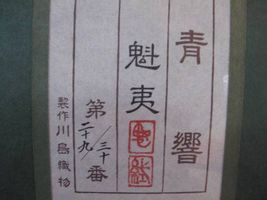 青響
魁夷
第二十九/三十番
製作川島織物